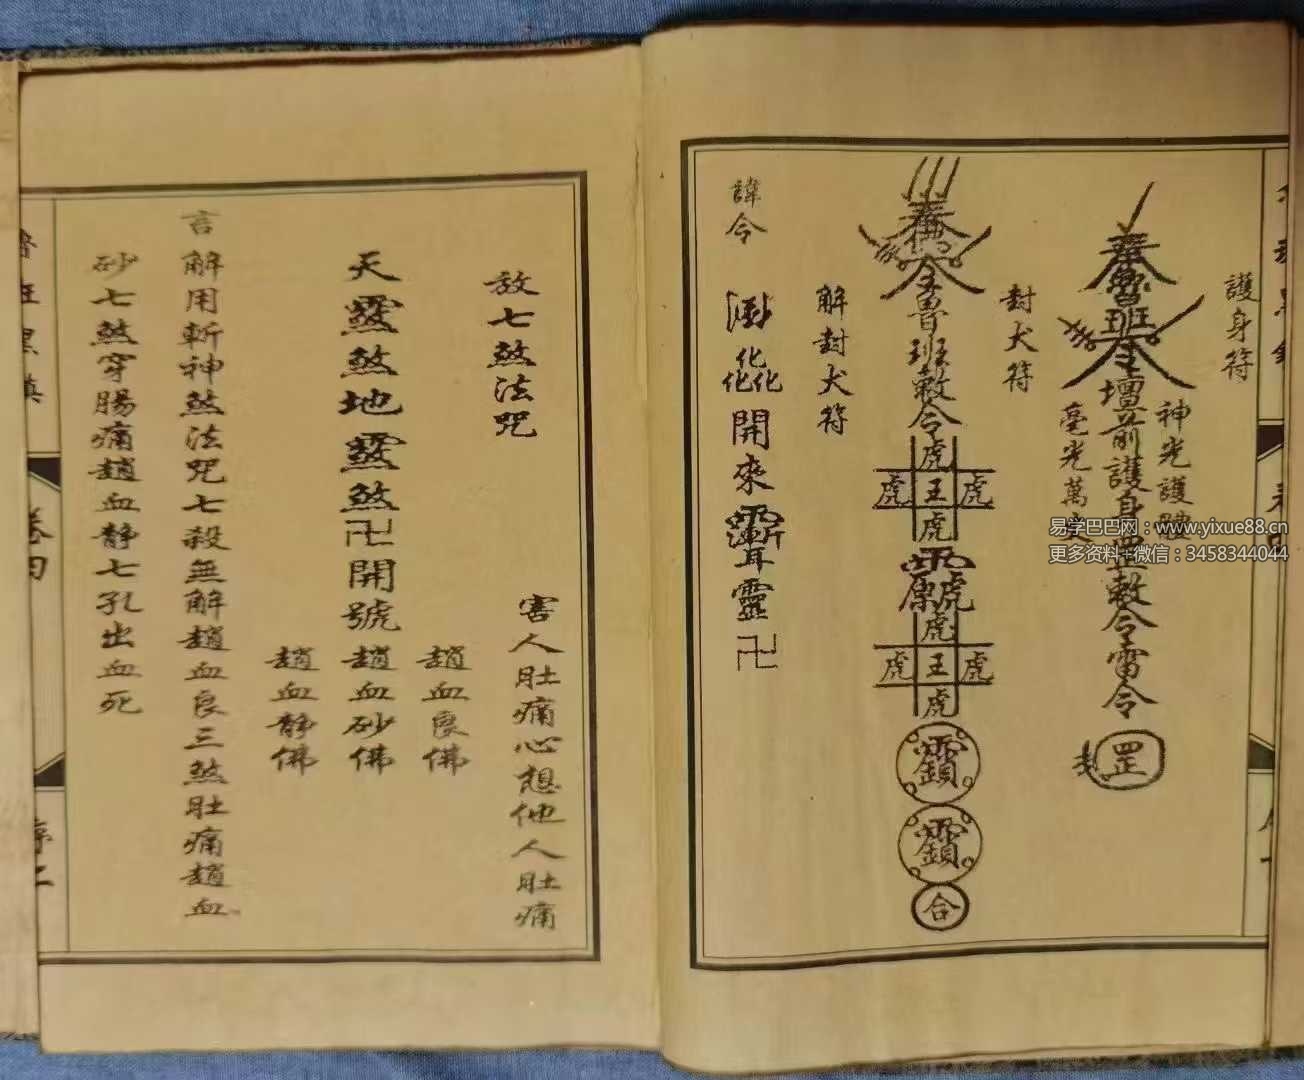 護身符
神光護體
毫光萬丈
奉魯班令壇前護身罡敕令雷令
罡
封犬符
奉佛令魯班敕令
虎
虎王虎
虎
虎
虎王虎
虎
合
解封犬符
諱令
開來
靈卍
放七煞法咒
害人肚痛心想他人肚痛
天煞地煞卍開號
趙血良佛
趙血砂佛
趙血靜佛
言解用斬神煞法咒七殺無解趙血良三煞肚痛趙血
砂七煞穿腸痛趙血靜七孔出血死
卷四
易学巴巴网：www.yixue88.cn
更多资料+微信：3458344044